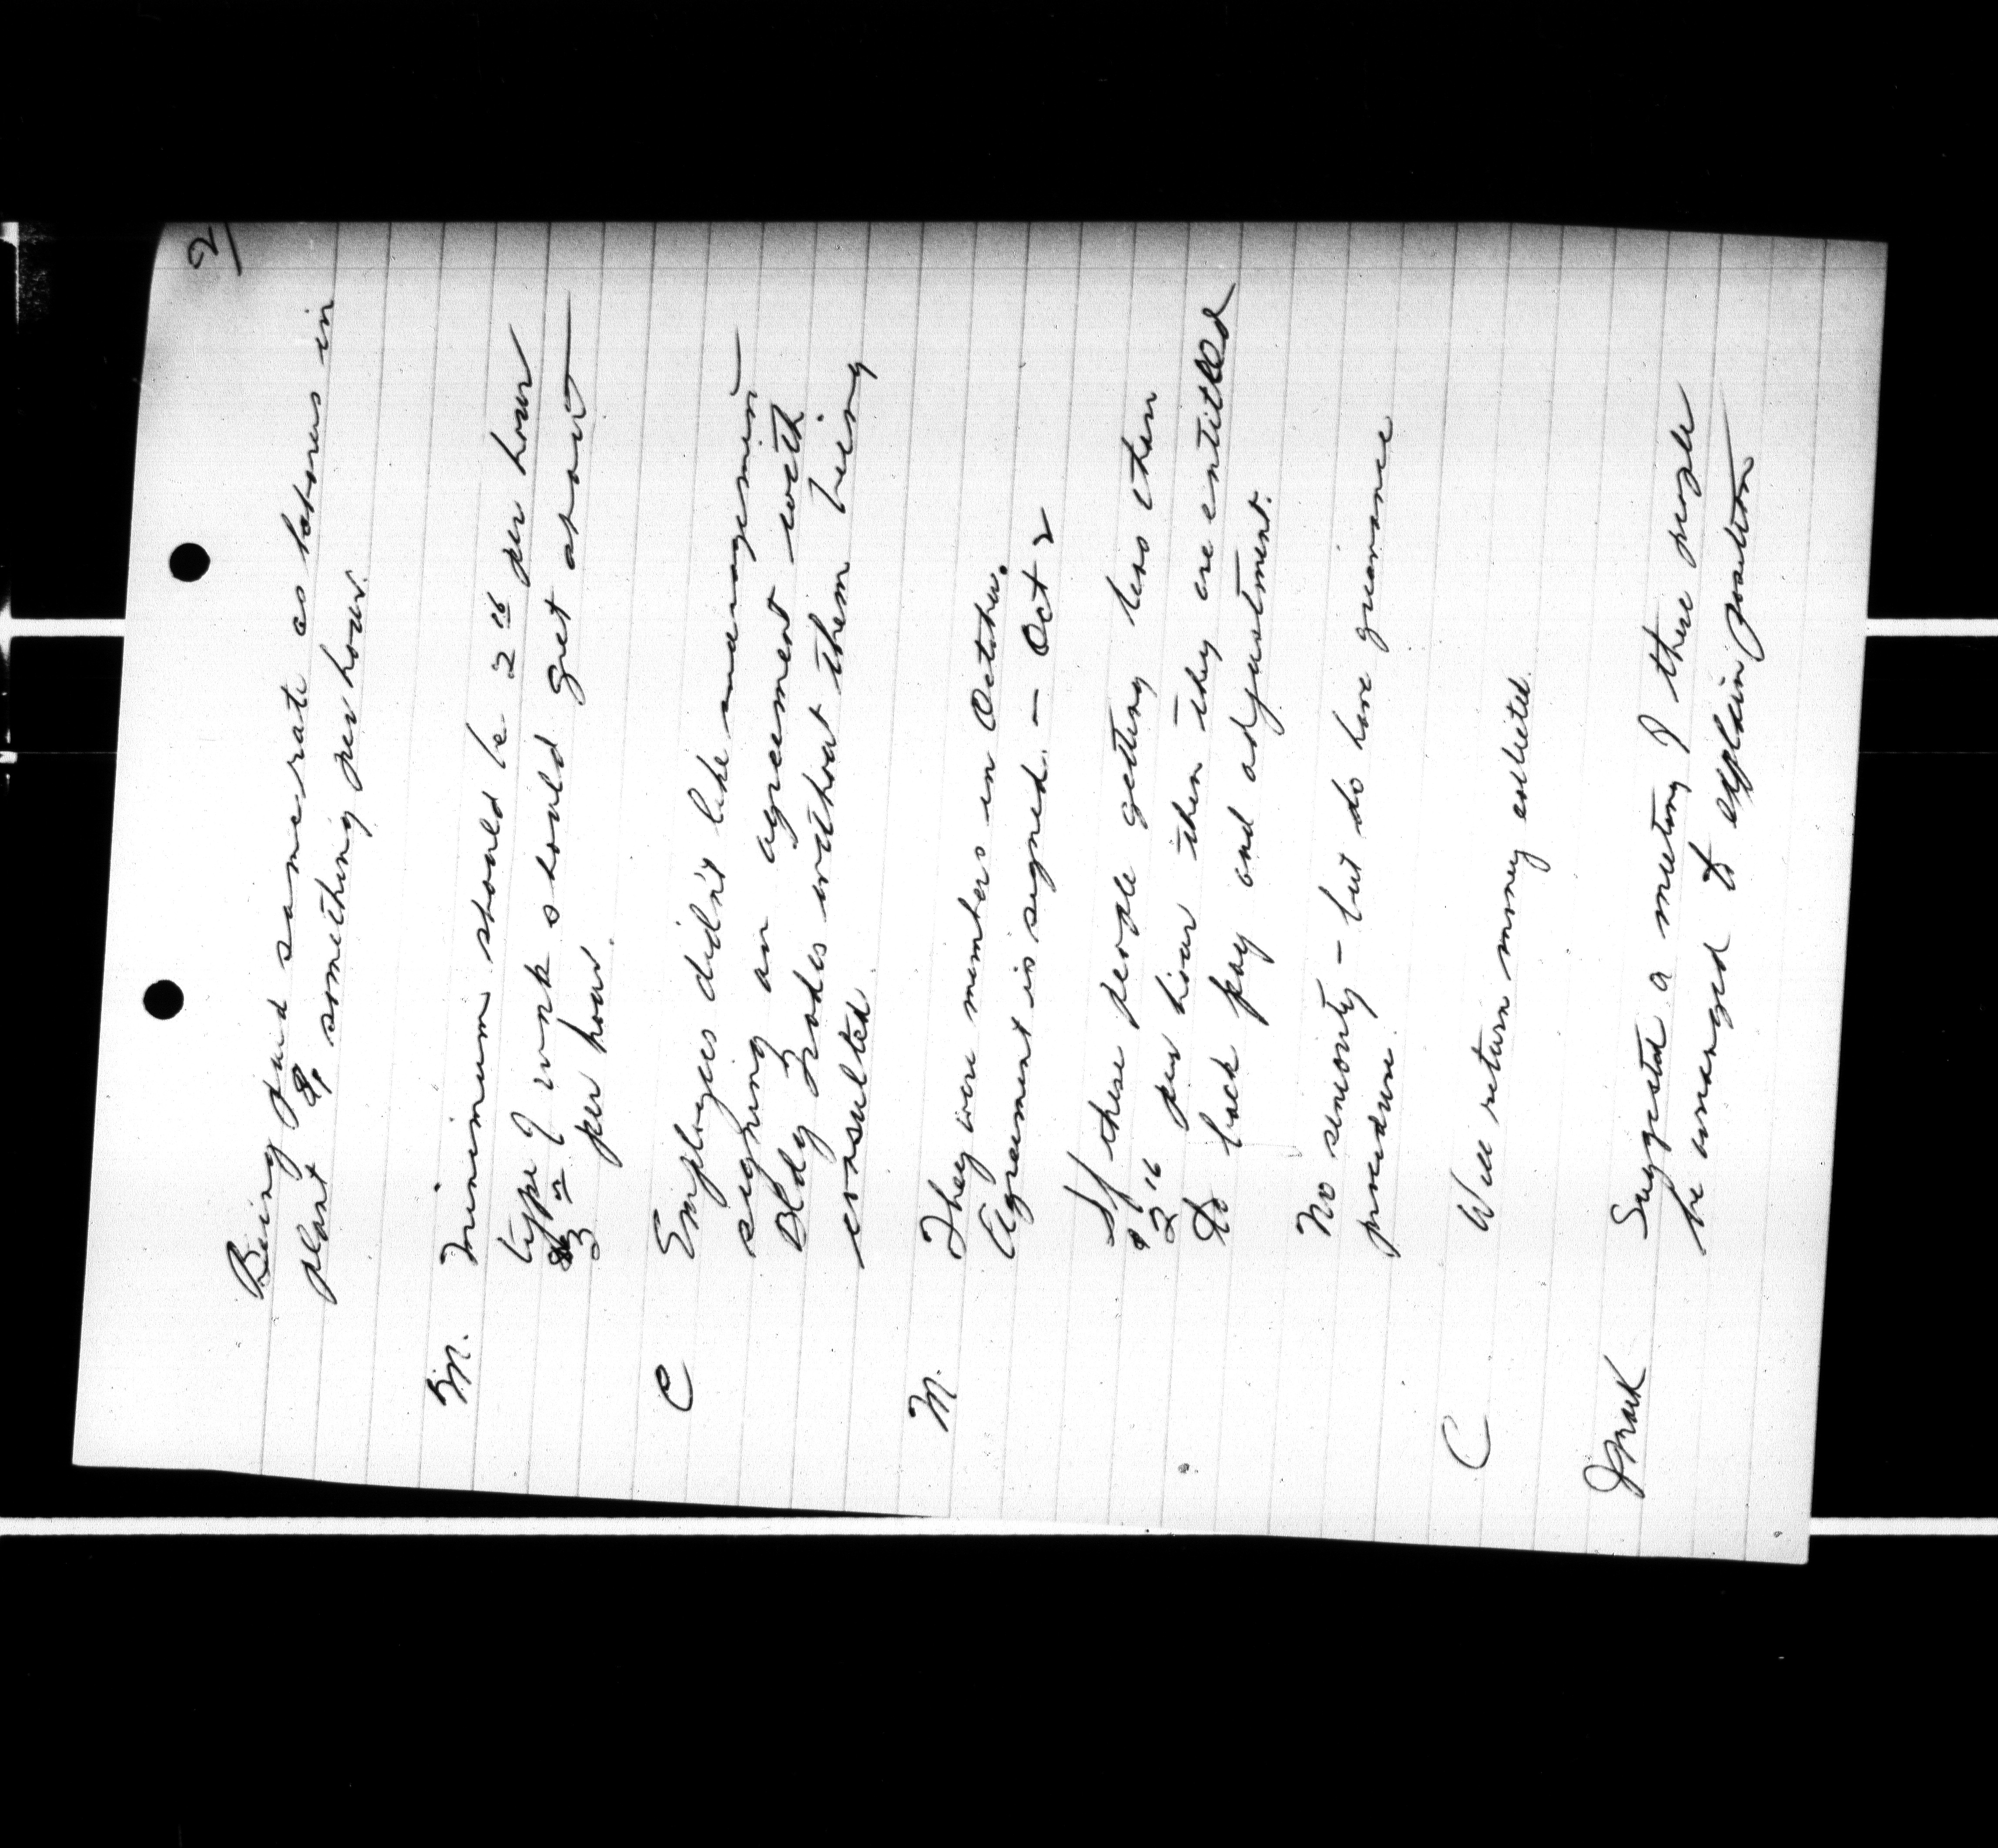 2/
Being paid same rate as laborers in
plant $1 something per hour.
M. Minimum should be 2 16 per hour
type of work should get about
$3 00 per hour.
C Employees didn't like management
signing an agreement with
Bldg Trades without them being
consulted
M. They were members in October.
Agreement is signed. — Oct 2
If these people getting less than
$2 16 per hour then they are entitled
to back pay and adjustment.
No seniority - but do have grievance
procedure.
C Will return money collected.
Suggested a meeting of these people
be arranged to explain position